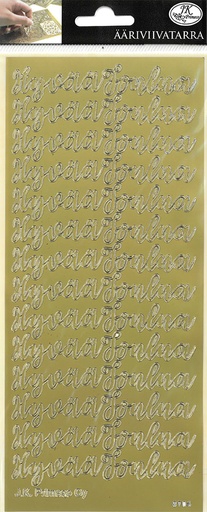 JK
ÄÄRIVIIVATARRA
Hyvää Joulua
Hyvää Joulua
Hyvää Joulua
Hyvää Joulua
Hyvää Joulua
Hyvää Joulua
Hyvää Joulua
Hyvää Joulua
Hyvää Joulua
Hyvää Joulua
Hyvää Joulua
Hyvää Joulua
Hyvää Joulua
Hyvää Joulua